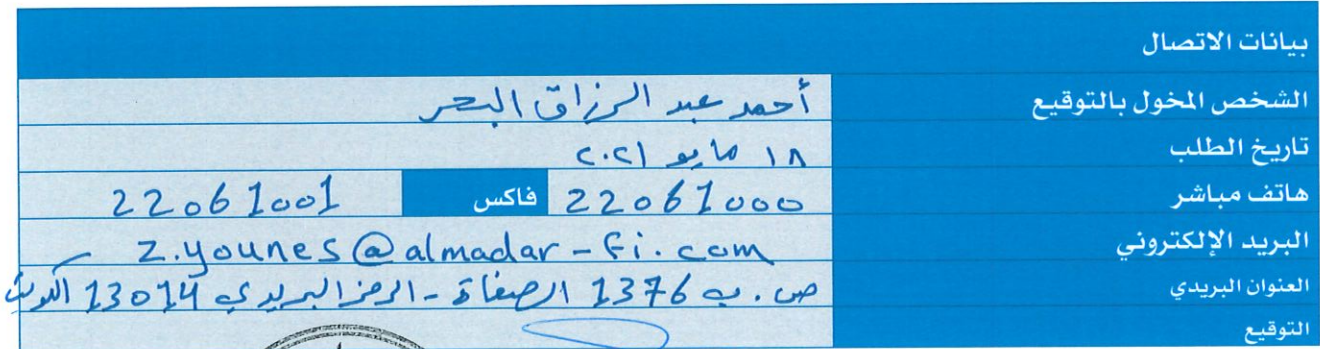 بيانات الاتصال
الشخص المخول بالتوقيع أحمد عبد الرزاق البحر
تاريخ الطلب ١٨ مايو ٢٠٢١
هاتف مباشر 22061000 فاكس 22061001
البريد الإلكتروني z.younes@almadar-fi.com
العنوان البريدي ص.ب 1376 الصفاة - الرمز البريدي 13014 الكويت
التوقيع